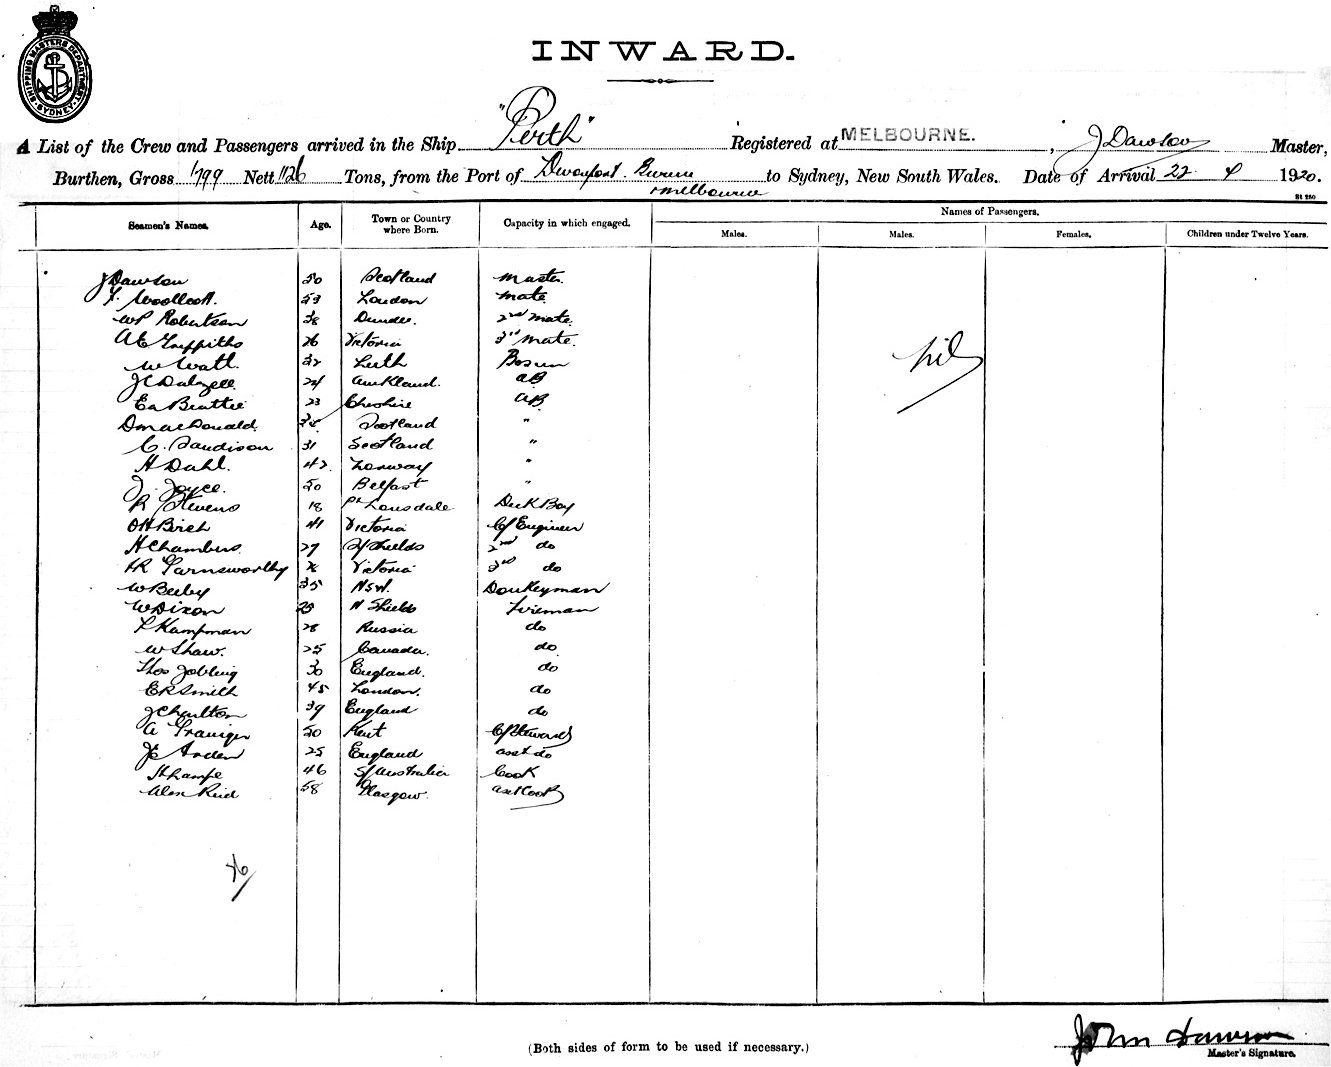 SHIPPING MASTERS DEPARTMENT SYDNEY
INWARD.
A List of the Crew and Passengers arrived in the Ship "Perth" Registered at MELBOURNE. , J Dawson Master,
Burthen, Gross 1799 Nett 1126 Tons, from the Port of Devonport. Burnie to Sydney, New South Wales. Date of Arrival 22 4 1920.
+ Melbourne
Seamen's Names. Age. Town or Country where Born. Capacity in which engaged. Names of Passengers.
Males. Males. Females. Children under Twelve Years.
J Dawson 50 Scotland Master.
Woollcott. 53 London Mate.
WP Robertson 38 Dundee. 2nd Mate.
AE Griffiths 26 Victoria 3rd Mate. nil
W Watt. 32 Leith Bosun
JC Dalzell. 24 Auckland. AB
Ea Beattie 23 Cheshire AB.
D MacDonald. Scotland "
C. Sandison 31 Scotland "
H Dahl. 42. Norway "
J. Joyce. 50 Belfast "
R Stevens 18 Pt Lonsdale Deck Boy
OH Birch 41 Victoria C/Engineer
H Chambers. 27 S/Shields 2nd do
HR Garnsworthy Victoria 3rd do
W Beeby 35 NSW. Donkeyman
W Dixon 25 N Shields Fireman
Kampman 28 Russia do
W Shaw. 25 Canada. do
Thos Jobling 30 England. do
ER Smith 45 London. do
J Charlton 39 England do
A Grainger 50 Kent C/Steward
Arden 25 England asst do
H Lampe 46 S/Australia Cook
Alex Reid 58 Glasgow. asst Cook
26
(Both sides of form to be used if necessary.)
John Dawson
Master's Signature.